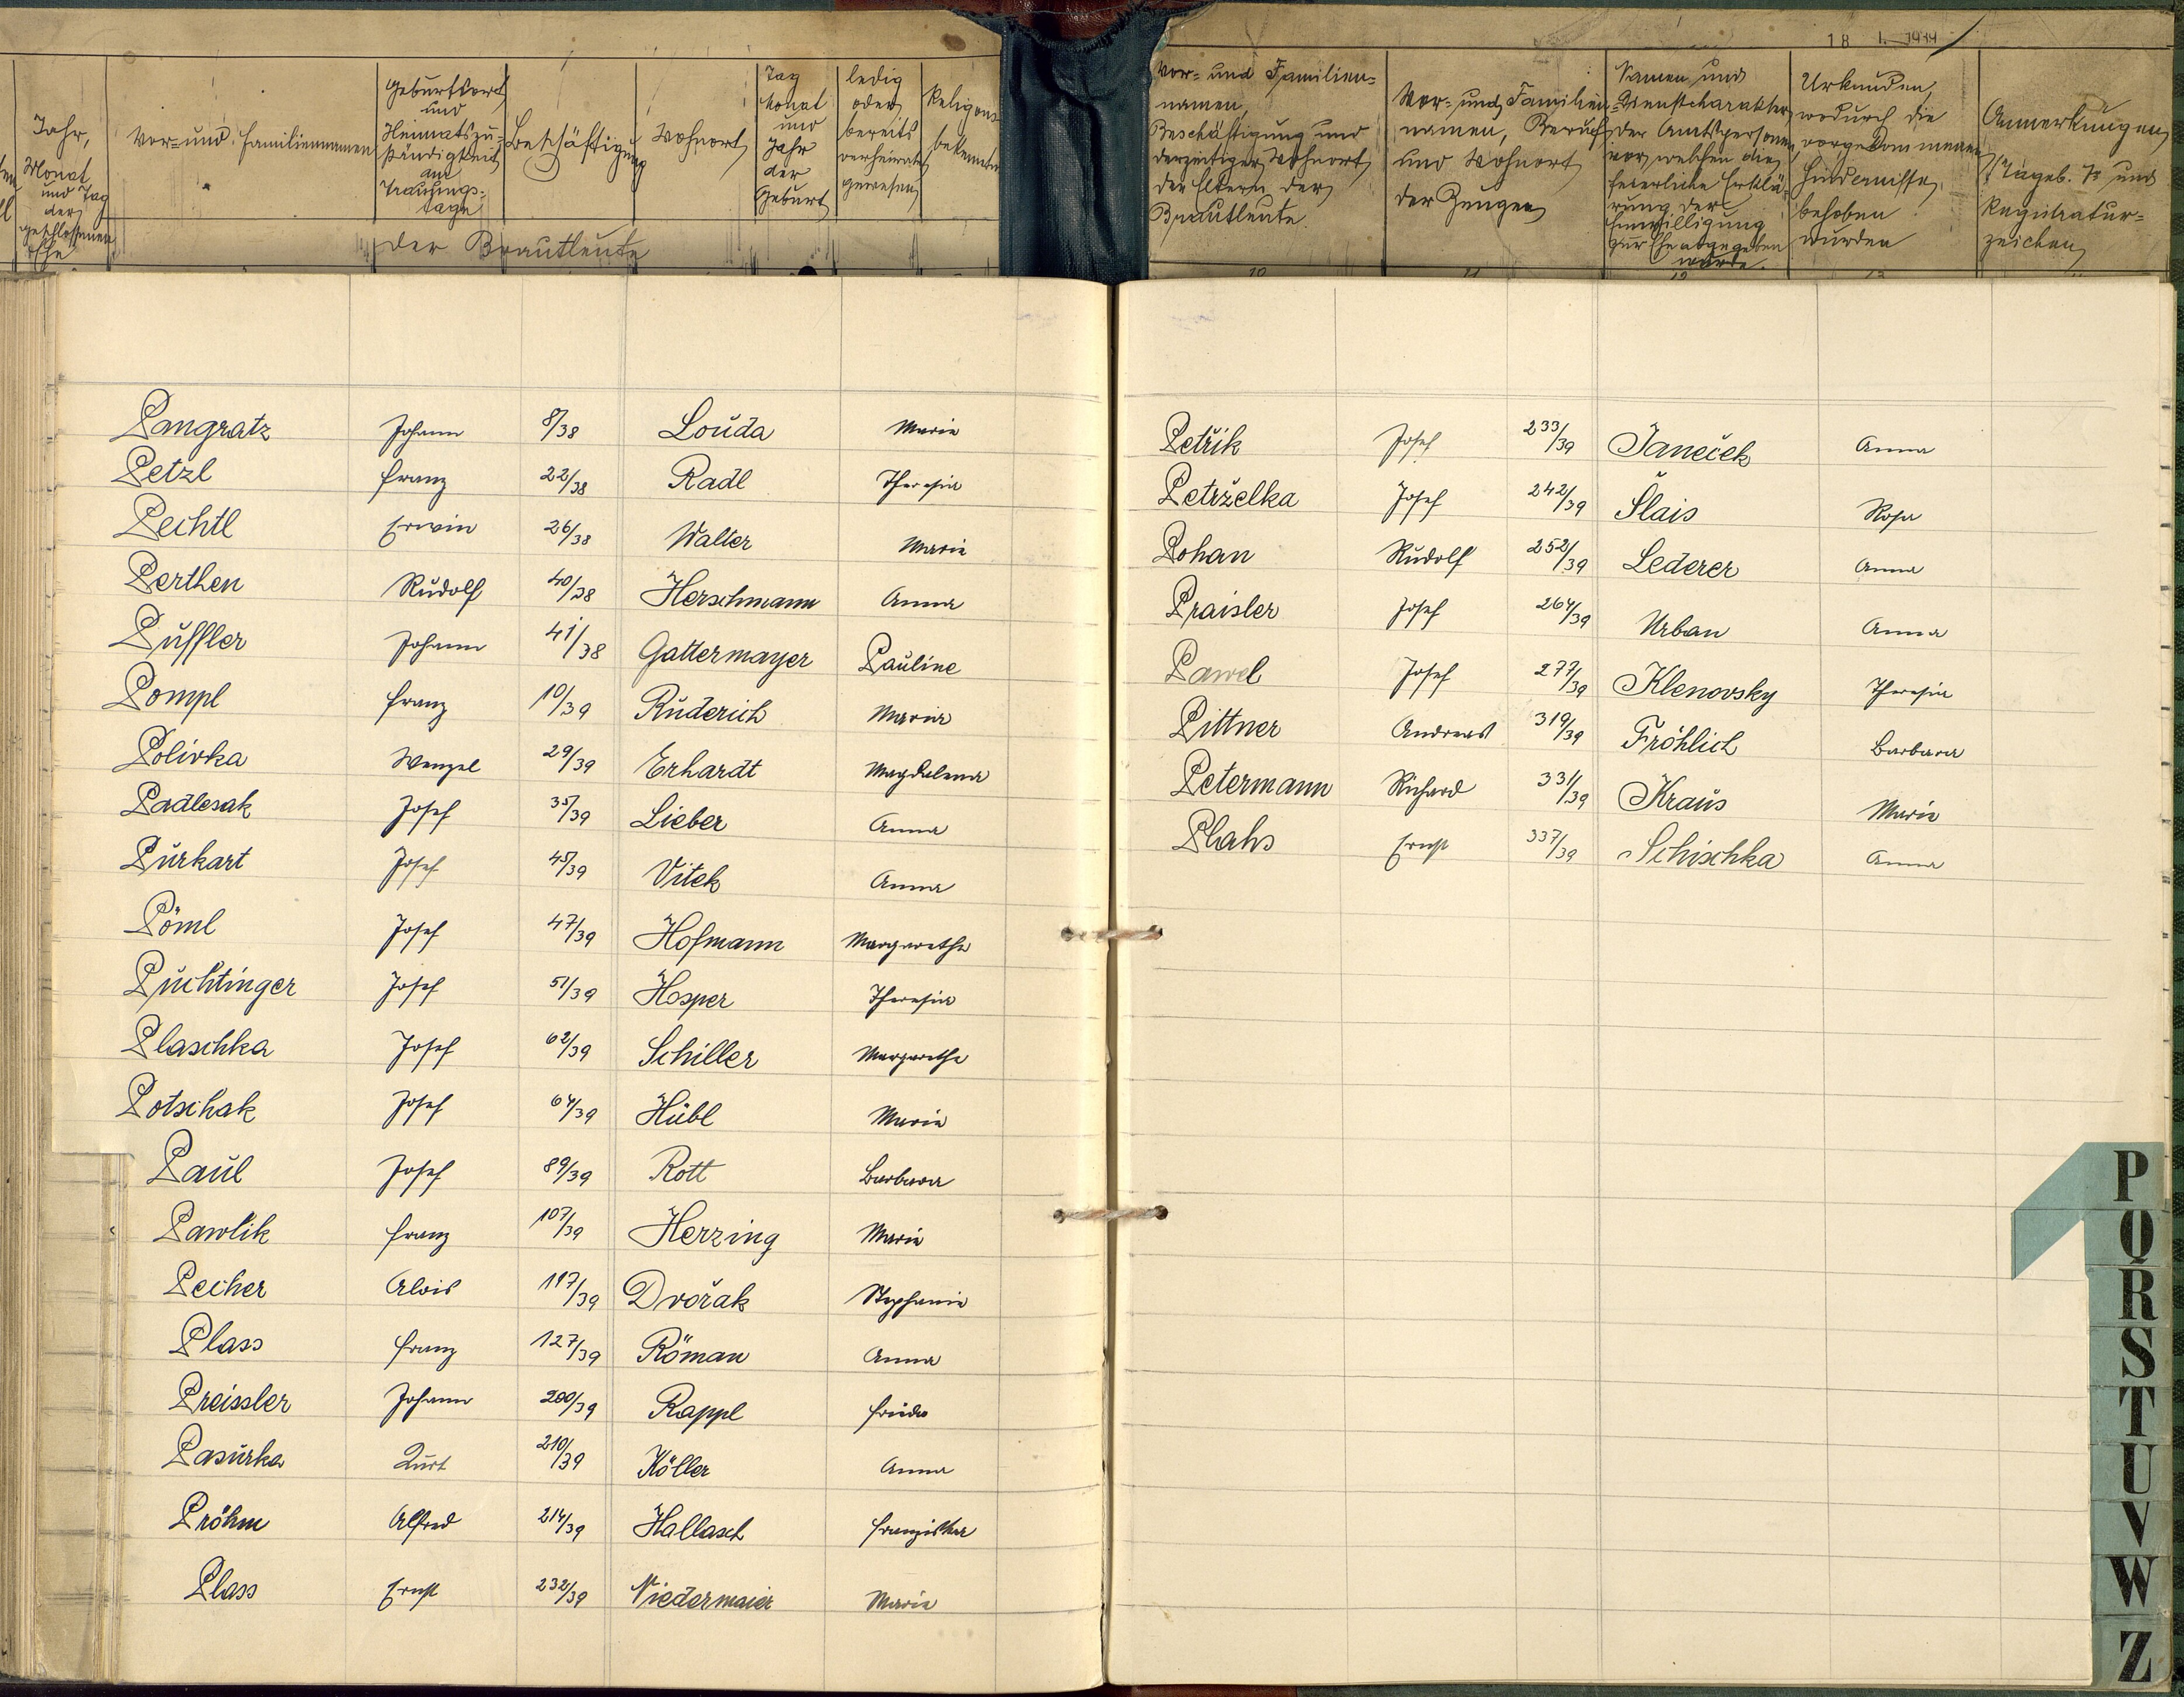 18 1. 1944
Jahr, Monat und Tag der geschlossenen Ehe
Vor- und Familiennamen
Geburtsort und Heimatszuständigkeit am Trauungstage
Beschäftigung
Wohnort
Tag Monat und Jahr der Geburt
ledig oder bereits verheiratet gewesen
Religions bekenntn
der Brautleute
Vor- und Familiennamen, Beschäftigung und derzeitiger Wohnort der Eltern der Brautleute
Vor- und Familiennamen, Beruf und Wohnort der Zeugen
Namen und Dienstcharakter der Amtspersonen vor welchen die feierliche Erklärung der Einwilligung zur Ehe abgegeben wurde.
Urkunden, wodurch die vorgekommenen Hindernisse behoben wurden
Anmerkungen (Tageb. № und Registraturzeichen
10 11 12 13
Pangratz Johann 8/38 Louda Marie
Petzl Franz 22/38 Radl Theresia
Pechtl Erwin 26/38 Walter Marie
Perthen Rudolf 40/38 Herschmann Anna
Puffler Johann 41/38 Gattermayer Pauline
Pompl Franz 10/39 Ruderich Maria
Polivka Wenzel 29/39 Erhardt Magdalena
Padlesak Josef 35/39 Lieber Anna
Purkart Josef 45/39 Vitek Anna
Pöml Josef 47/39 Hofmann Margarethe
Puchtinger Josef 51/39 Hosper Theresia
Plaschka Josef 62/39 Schiller Margarethe
Potschak Josef 64/39 Hübl Marie
Paul Josef 89/39 Rott Barbara
Pawlik Franz 107/39 Herzing Marie
Pecher Alois 117/39 Dvořak Stephanie
Plass Franz 127/39 Röman Anna
Preissler Johann 200/39 Rappl Frieda
Pasurka Kurt 210/39 Köller Anna
Pröhm Alfred 214/39 Hallasch Franziska
Plass Ernst 232/39 Niedermaier Marie
Petřik Josef 233/39 Janeček Anna
Petrželka Josef 242/39 Šlais Rosa
Pohan Rudolf 252/39 Lederer Anna
Praisler Josef 264/39 Urban Anna
Pawel Josef 277/39 Klenovsky Theresia
Pittner Andreas 319/39 Fröhlich Barbara
Petermann Richard 331/39 Kraus Marie
Plahs Ernst 337/39 Schischka Anna
P
Q
R
S
T
U
V
W
Z